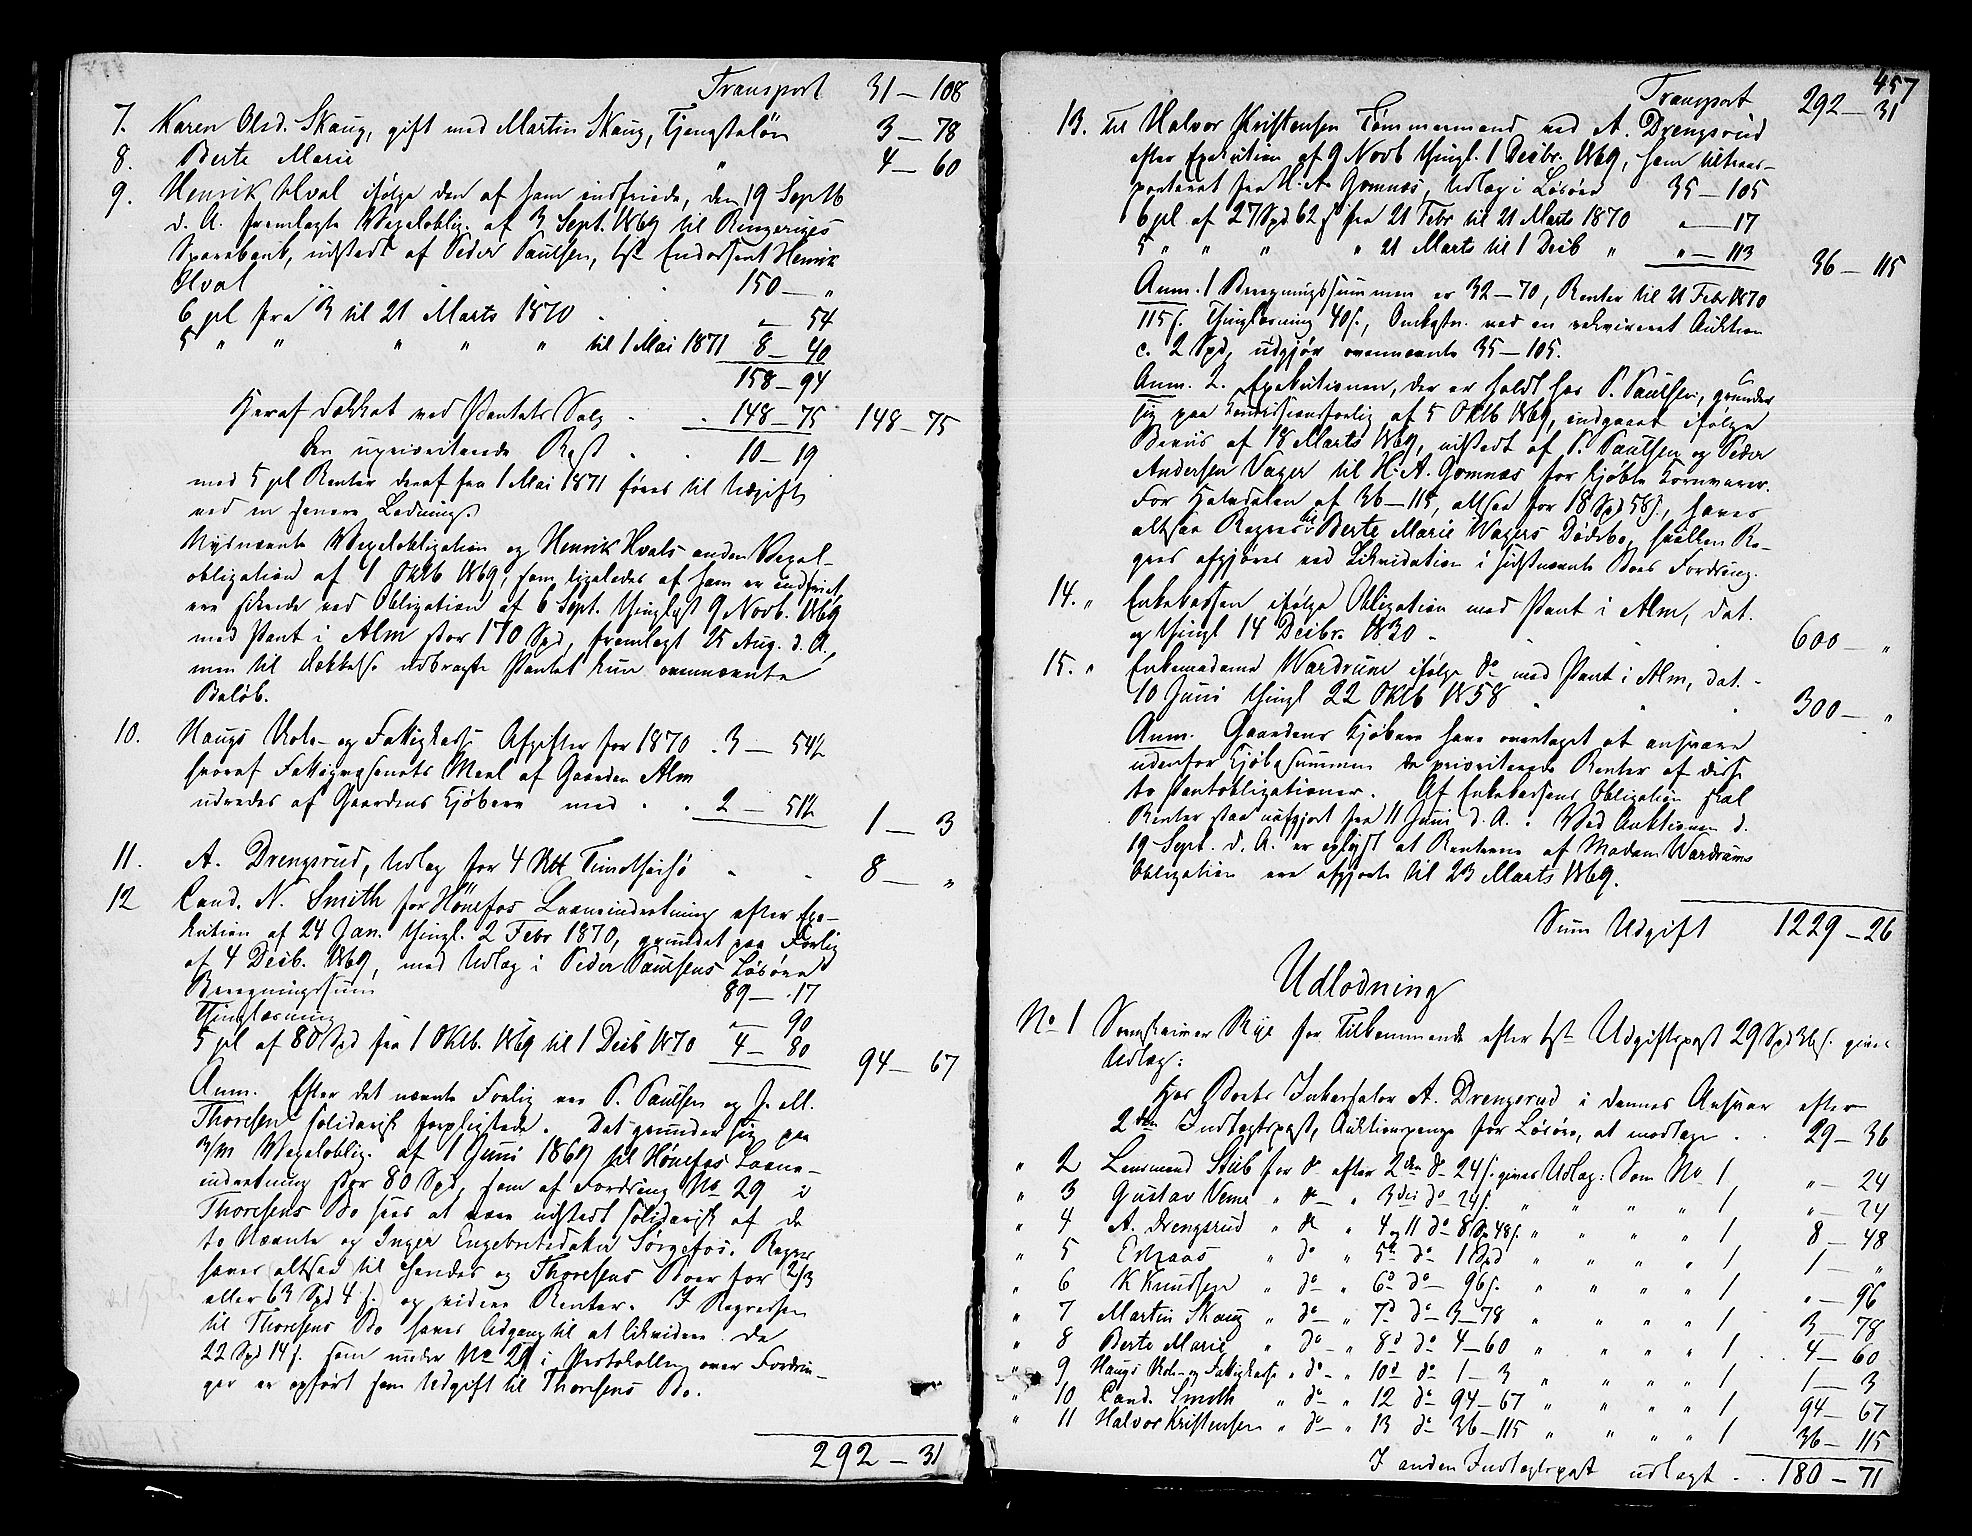 Transport 31 – 108
7. Karen Olsd. Skaug, gift med Martin Skaug, Tjenesteløn 3 – 78
8. Berte Marie " 4 – 60
9. Henrik Hval ifølge den af ham indfriede, den 19 Septb
d. A. fremlagte Vexeloblig. af 3 Sept. 1869 til Ringeriges
Sparebank, udstedt af Peder Paulsen, 1ste Endossent Henrik
Hval 150 – "
6 pCt fra 3 til 21 Marts 1870 . . " – 54
5 " " " " " til 1 Mai 1871 8 – 40
158 – 94
Heraf dækket ved Pantets Salg . . 148 – 75 148 – 75
Den uprioriterede Rest . . 10 – 19
med 5 pCt Renter deraf fra 1 Mai 1871 føres til Udgift
ved en senere Lodning.
Nysnævnte Vexelobligation og Henrik Hvals anden Vexel-
obligation af 1 Oktb 1869, som ligeledes af ham er indfriet,
ere sikrede ved Obligation af 6 Sept. thinglyst 9 Novb. 1869
med Pant i Alm stor 170 Spd, fremlagt 25 Aug. d. A.,
men til Dækkelse udbragte Pantet kun ovennævnte
Beløb.
10. Haugs Skole- og Fattigkasse Afgifter for 1870 . 3 – 54½
hvoraf Fattigvæsenets Meel af Gaarden Alm
udredes af Gaardens Kjøbere med . . 2 – 51½ 1 – 3
11. A. Drengsrud, Udlæg for 4 Timotheihø . . 8 – "
12 Cand. N. Smith for Hönefos Laaneindretning efter Exe-
kution af 24 Jan. thingl. 2 Febr 1870, grundet paa Forlig
af 4 Decb. 1869, med Udlæg i Peder Paulsens Løsøre
Beregningssum 89 – 17
Thinglæsning " – 90
5 pCt af 80 Spd fra 1 Oktb. 1869 til 1 Decb 1870 4 – 80 94 – 67
Anm. Efter det nævnte Forlig ere P. Paulsen og
Thoresen solidarisk forpligtede. Det grunder sig paa
3/m Vexeloblig. af 1 Juni 1869 til Hönefos Laane-
indretning stor 80 Spd, som af Fordring No 29 i
Thoresens Bo sees at være udstedt solidarisk af de
to Nævnte og Inger Engebretsdatter Sørgefos. Regres
haves altsaa til hendes og Thoresens Boer for (2/3
eller 63 Spd 4 s.) og videre Renter. I Regressen
til Thoresens Bo haves Adgang til at likvidere de
22 Spd 14 s. som under No 29 i Protokollen over Fordrin-
ger er opført som Udgift til Thoresens Bo.
292 – 31
457
Transport 292 – 31
13. Til Halvor Kristensen Tömmermand ved A. Drengsrud
efter Exekution af 9 Novb thingl. 1 Decbr. 1869, som til trans-
porteret fra H. A. Gomnæs, Udlæg i Løsøre 35 – 105
6 pCt af 27 Spd 62 s fra 21 Febr til 21 Marts 1870 " – 17
5 " " " " 21 Marts til 1 Decb " " – 113 36 – 115
Anm. 1 Beregningssummen er 32 – 70, Renter til 21 Febr 1870
115 s. Thinglæsning 40 s., Omkostn. ved en rekvireret Auktion
c. 2 Spd, udgjør ovennævnte 35 – 105.
Anm. 2. Exekutionen, der er holdt hos P. Paulsen, grunder
sig paa Kommissionsforlig af 5 Oktb 1869, indgaaet ifølge
Beviis af 18 Marts 1869, udstedt af P. Paulsen og Peder
Andersen Vager til H. A. Gomnæs for kjøbte Kornvarer.
For Halvdelen af 36 – 115, altsaa for 18 Spd 58 s., haves
altsaa Regres til Berte Marie Vagers Dødsbo, hvilken Re-
gres afgjøres ved Likvidation i sidstnævnte Boes Fordring.
14. " Enkekassen ifølge Obligation med Pant i Alm, dat.
og thingl 14 Decbr. 1830 . 600 – "
15. " Enkemadame Wardrum ifølge do med Pant i Alm, dat.
10 Juni thingl 22 Oktb 1858 300 – "
Anm. Gaardens Kjøbere have overtaget at ansvare
udenfor Kjøbesummen de prioriterede Renter af disse
to Pantobligationer. Af Enkekassens Obligation skal
Renter staa uafgjort fra 11 Juni d. A. Ved Auktionen d.
19 Sept. d. A. er oplyst at Renterne af Madam Wardrums
Obligation ere afgjorte til 23 Marts 1869.
Sum Udgift 1229 – 26
Udlodning
No 1 Sorenskriver Rye for Tilkommende efter 1ste Udgiftspost 29 Spd 36 s. gives
Udlæg:
Hos Boets Inkassator A. Drengsrud i dennes Ansvar efter
2den Indtægtspost, Auktionspenge for Løsøre, at modtage . . 29 – 36
" 2 Lensmand Stub for do efter 2den do 24 s. gives Udlæg: Som No 1 " – 24
" 3 Gustav Veme " do " 3die do 24 s. " " " " 1 " – 24
" 4 A. Drengsrud " do " 4 og 11 do 8 Spd 48 s. " " " " 1 8 – 48
" 5 " do " 5te do 1 Spd " " " " 1 1 – "
" 6 K Knudsen " do " 6te do 96 s. " " " " 1 " – 96
" 7 Martin Skaug " do " 7de do 3 – 78 " " " " 1 3 – 78
" 8 Berte Marie " do " 8de do 4 – 60 " " " " 1 4 – 60
" 9 Haugs Skole- og Fattigkasse " do " 10de do 1 – 3 " " " " 1 1 – 3
" 10 Cand. Smith " do " 12 do 94 – 67 " " " " 1 94 – 67
" 11 Halvor Kristensen " do " 13 do 36 – 115 " " " " 1 36 – 115
I anden Indtægtspost udlagt . . 180 – 71